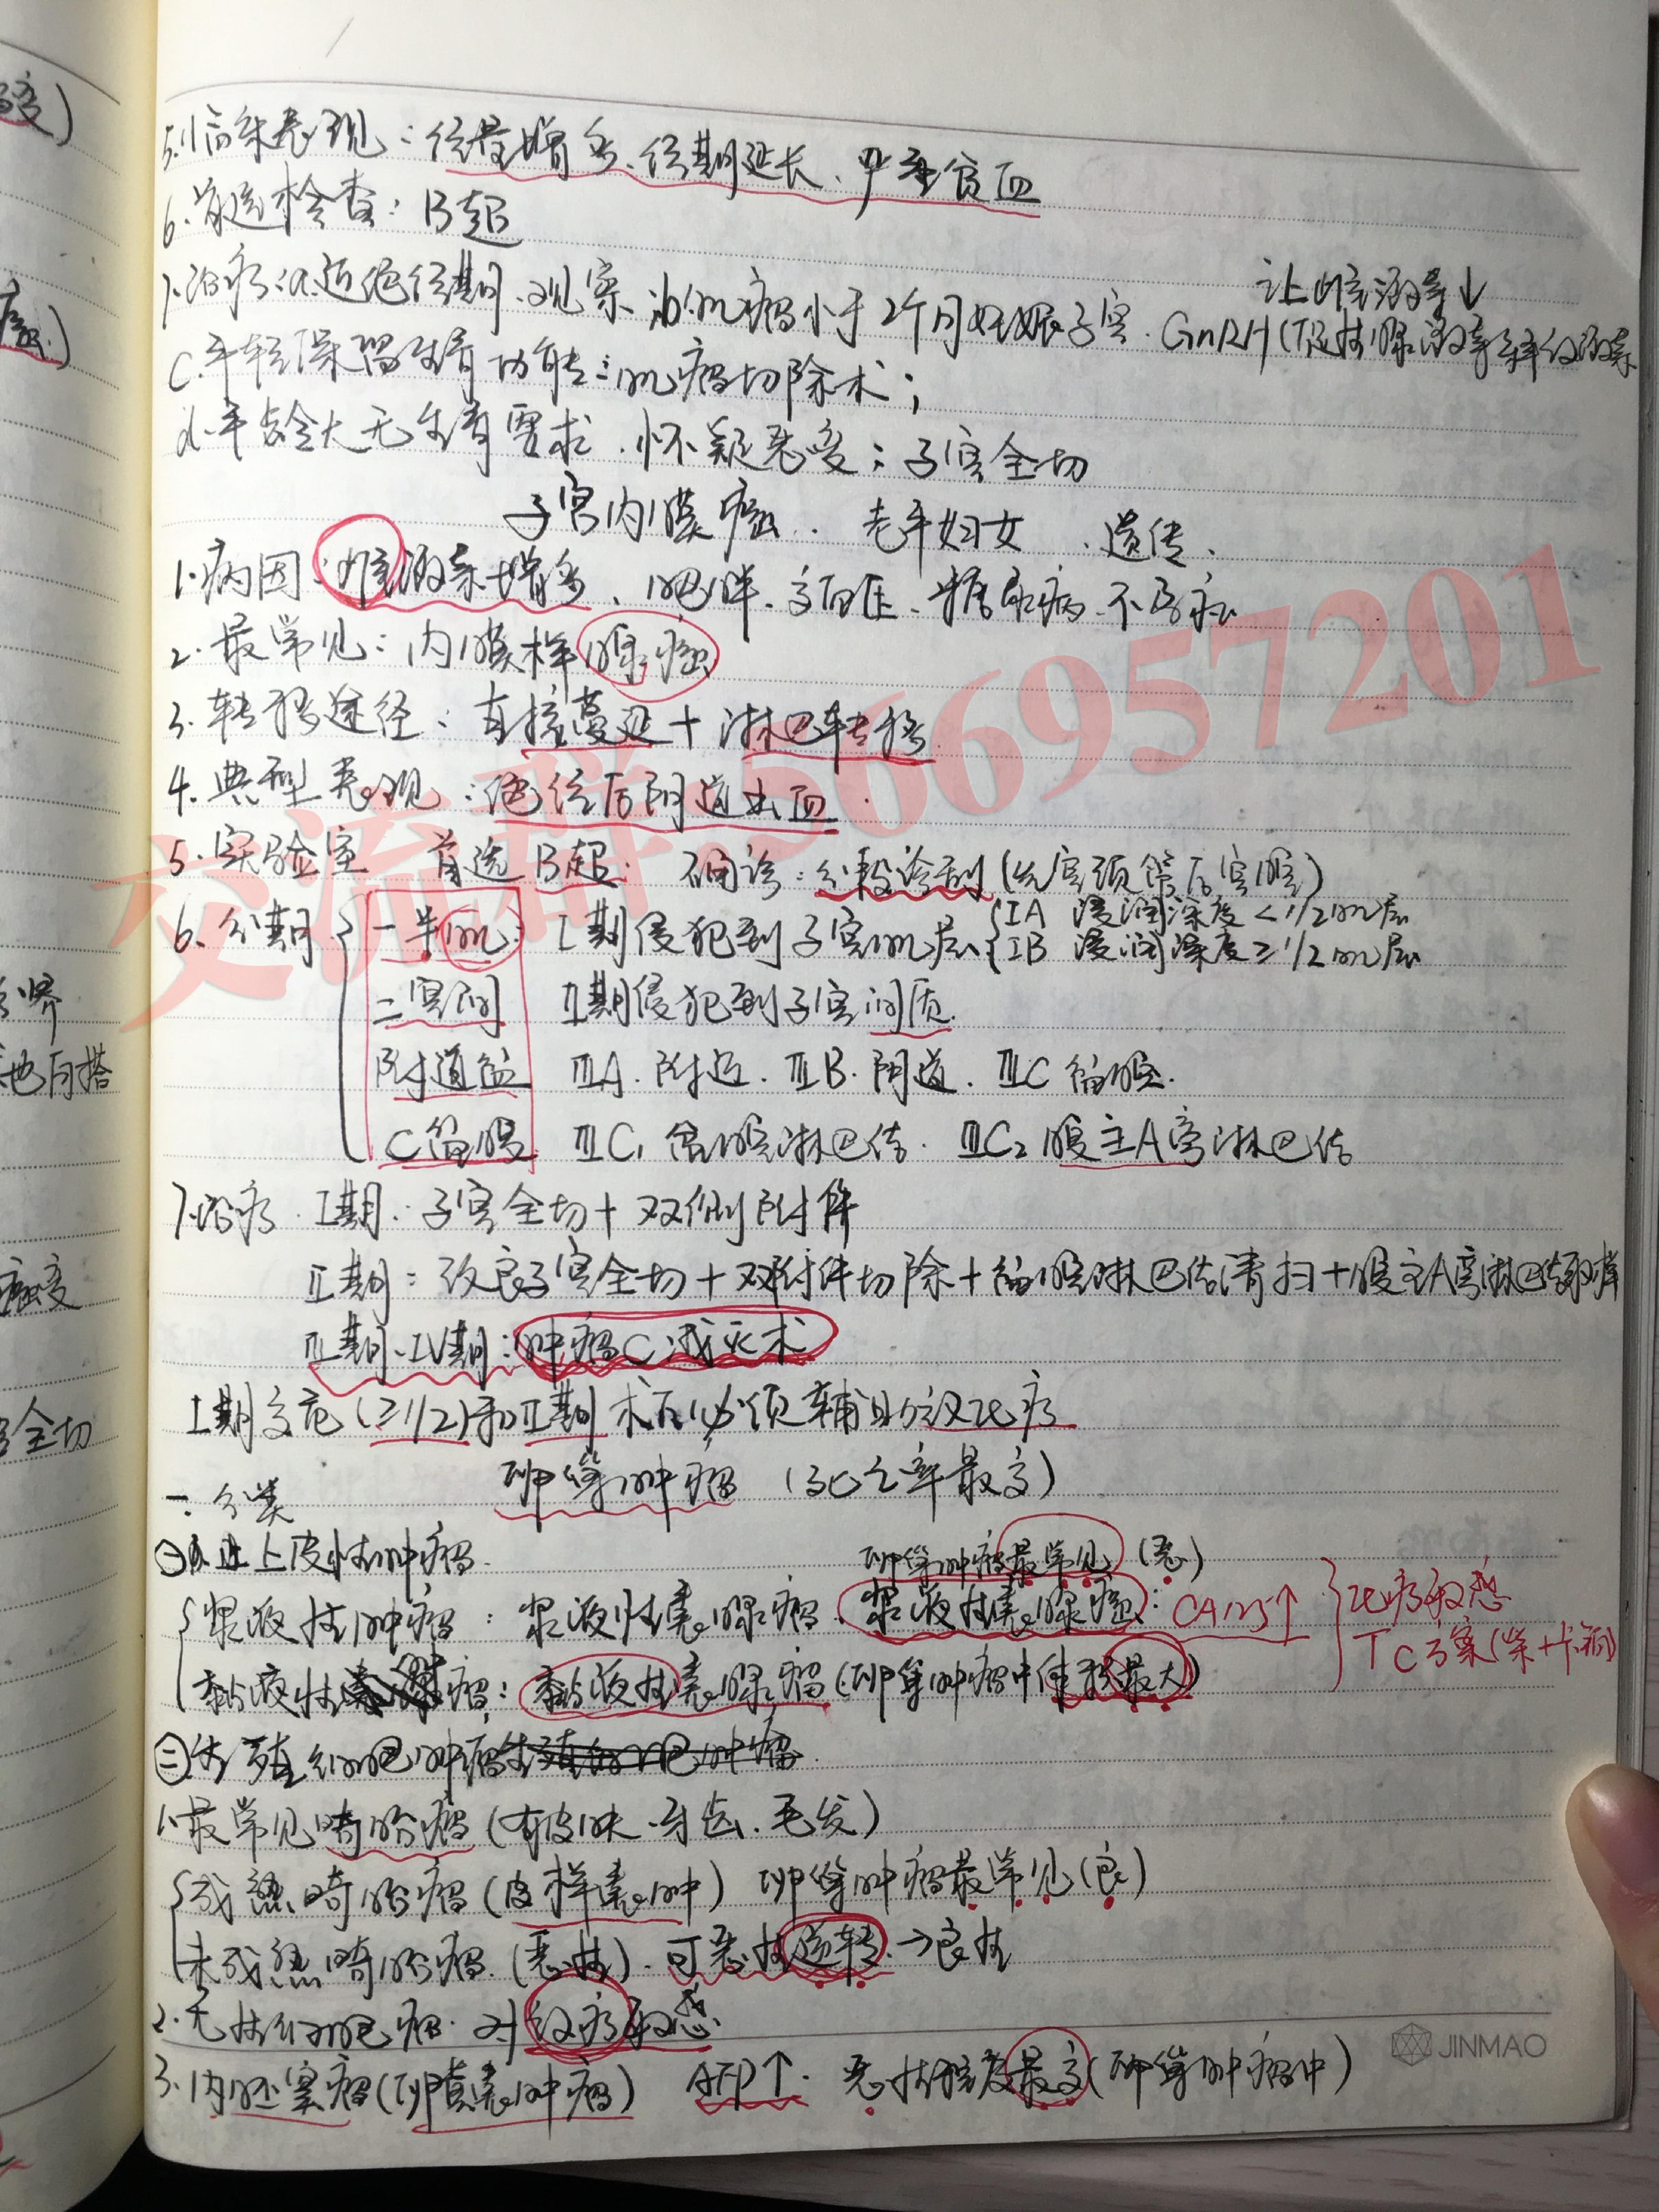 5.临床表现:经量增多、经期延长、严重贫血
6.首选检查:B超
让雌激素↓
7.治疗:a.近绝经期、观察 b.肌瘤小于2个月妊娠子宫.GnRH(促性腺激素释放激素
C.年轻保留生育功能:肌瘤切除术;
d.年龄大无生育要求.怀疑恶变:子宫全切
子宫内膜癌. 老年妇女、遗传、
1.病因:雌激素增多、肥胖、高血压、糖尿病、不孕症
2.最常见:内膜样腺癌
3.转移途径:直接蔓延+淋巴转移
4.典型表现:绝经后阴道出血.
5.实验室 首选B超. 确诊:分段诊刮(先宫颈管后宫腔)
6.分期 一半肌: Ⅰ期侵犯到子宫肌层 ⅠA 浸润深度<1/2肌层
ⅠB 浸润深度≥1/2肌层
二宫间 Ⅱ期侵犯到子宫间质.
附道盆 ⅢA.附近.ⅢB.阴道.ⅢC 盆腔.
C盆腹 ⅢC₁ 盆腔淋巴结. ⅢC₂ 腹主A旁淋巴结
7.治疗.Ⅰ期:子宫全切+双侧附件
Ⅱ期:改良子宫全切+双附件切除+盆腔淋巴结清扫+腹主A旁淋巴结取样
Ⅲ期、Ⅳ期:肿瘤C减灭术
Ⅰ期高危(≥1/2)和Ⅱ期术后必须辅助放化疗
卵巢肿瘤 (死亡率最高)
一.分类
㊀上皮性肿瘤.
卵巢肿瘤最常见(恶)
浆液性肿瘤:浆液性囊腺瘤.浆液性囊腺癌:CA125↑ 化疗敏感
TC方案(紫+卡铂)
黏液性瘤:黏液性囊腺瘤(卵巢肿瘤中体积最大)
㊁生殖细胞肿瘤
1.最常见畸胎瘤(有皮肤.牙齿.毛发)
成熟畸胎瘤(皮样囊肿) 卵巢肿瘤最常见(良)
未成熟畸胎瘤.(恶性).可恶性逆转→良性
2.无性细胞瘤.对放疗敏感.
3.内胚窦瘤(卵黄囊肿瘤) AFP↑. 恶性程度最高(卵巢肿瘤中)
JINMAO
交流群:566957201
高变)
瘤.)
也可搭
癌变
宫全切